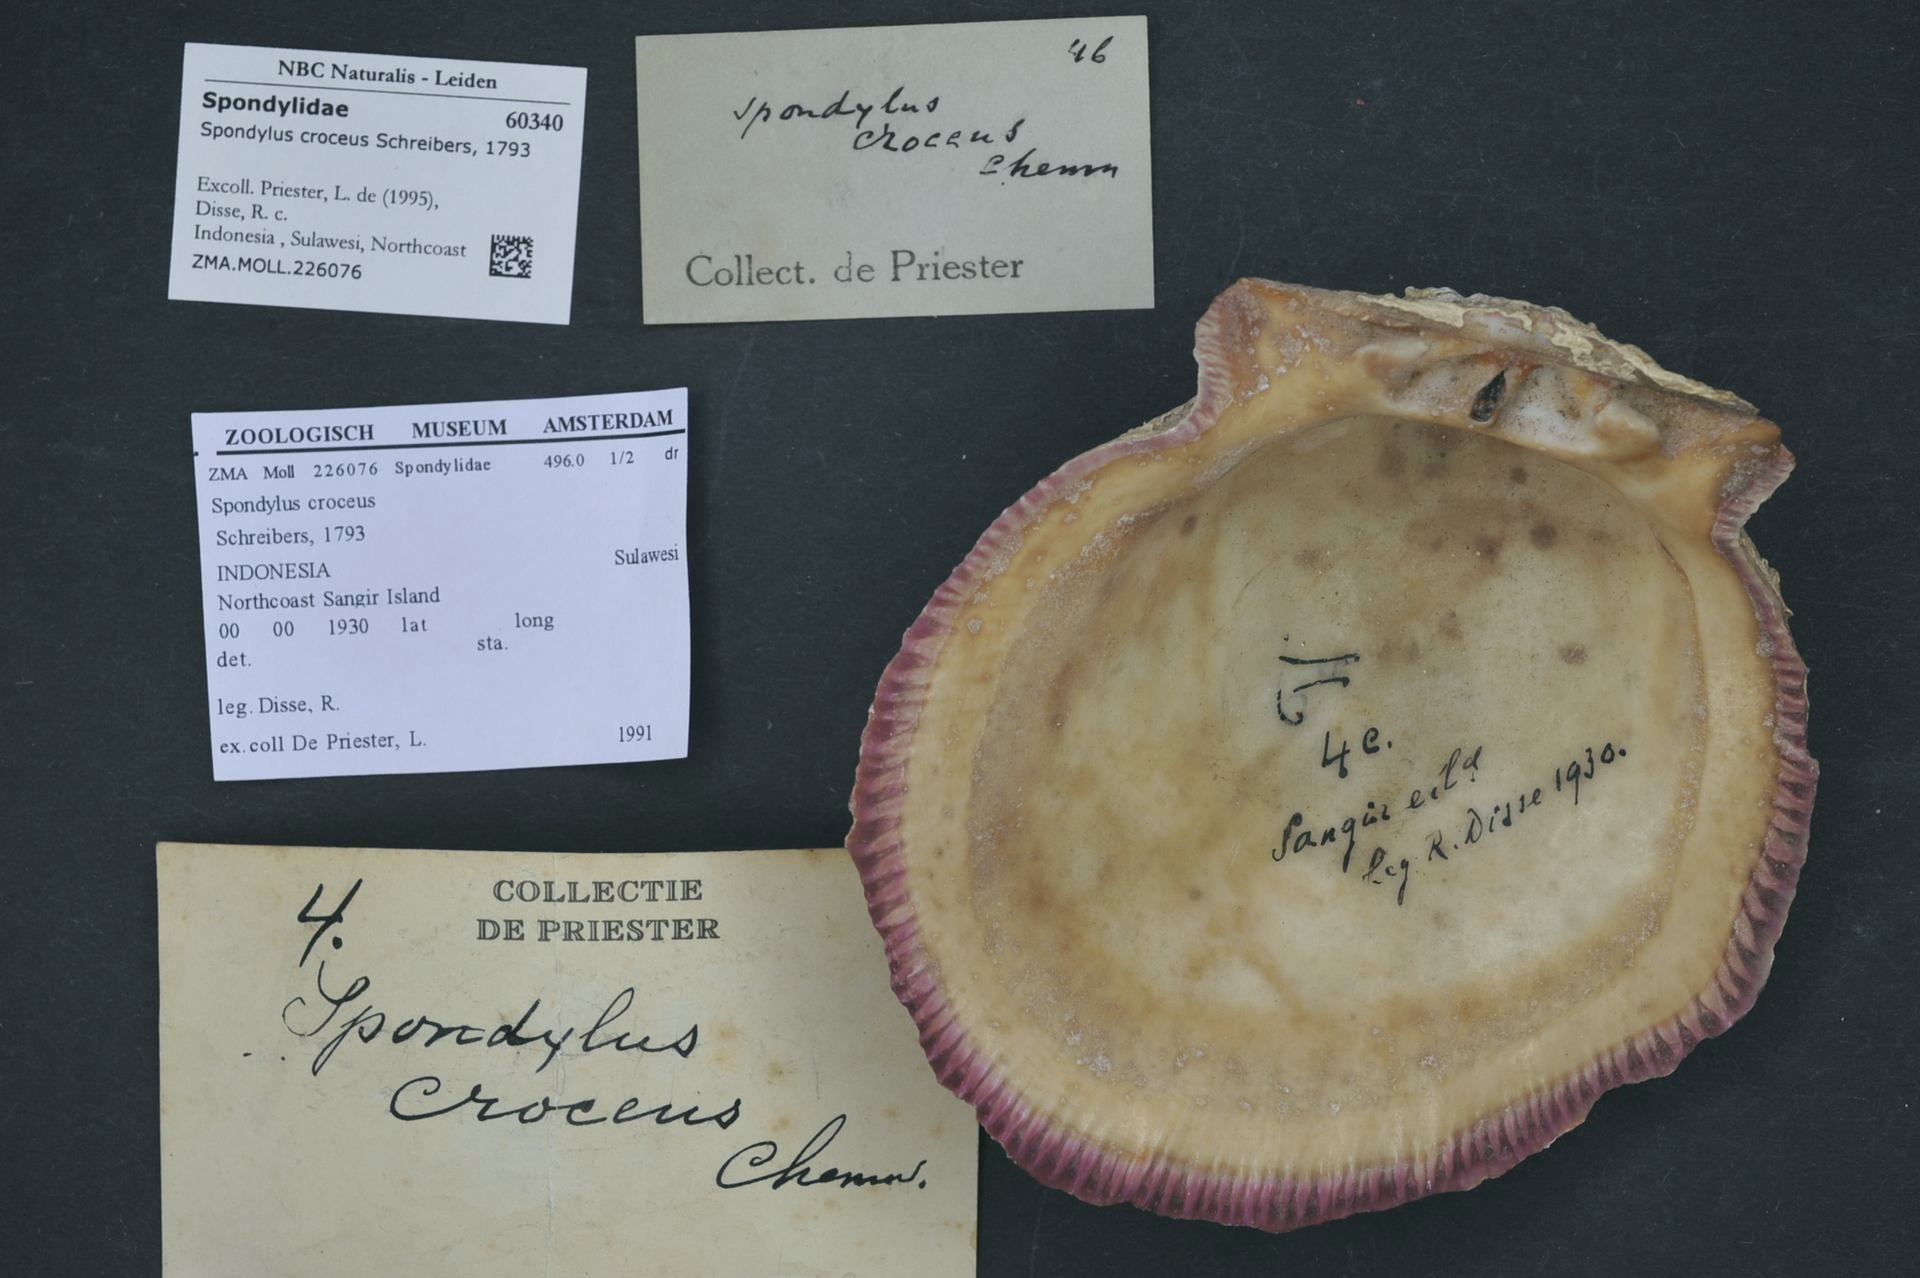 NBC Naturalis - Leiden
Spondylidae 60340
Spondylus croceus Schreibers, 1793
Excoll. Priester, L. de (1995),
Disse, R. c.
Indonesia , Sulawesi, Northcoast
ZMA.MOLL.226076
46
Spondylus
croceus
Chemn
Collect. de Priester
ZOOLOGISCH MUSEUM AMSTERDAM
ZMA Moll 226076 Spondylidae 496.0 1/2 dr
Spondylus croceus
Schreibers, 1793
INDONESIA Sulawesi
Northcoast Sangir Island
00 00 1930 lat long
sta.
det.
leg. Disse, R.
ex. coll De Priester, L. 1991
4.
COLLECTIE
DE PRIESTER
Spondylus
Croceus
Chemn.
4c.
Sangir eild
leg. R. Disse 1930.